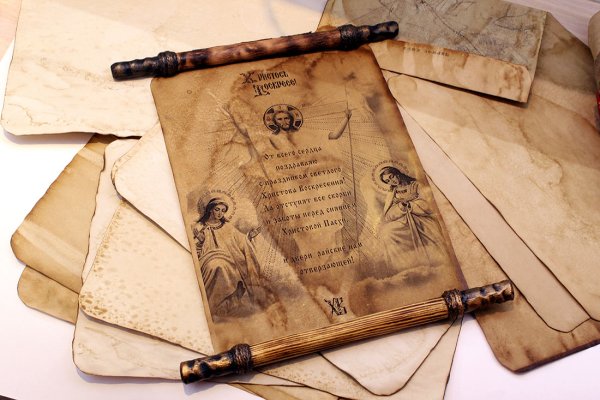 Христосъ
Воскресе!
От всего сердца
поздравляю
с праздником светлого
Христова Воскресения!
Да отступят все скорби
и заботы перед сиянием
Христовой Пасхи
и двери райские нам
отверзающей!
ХВ